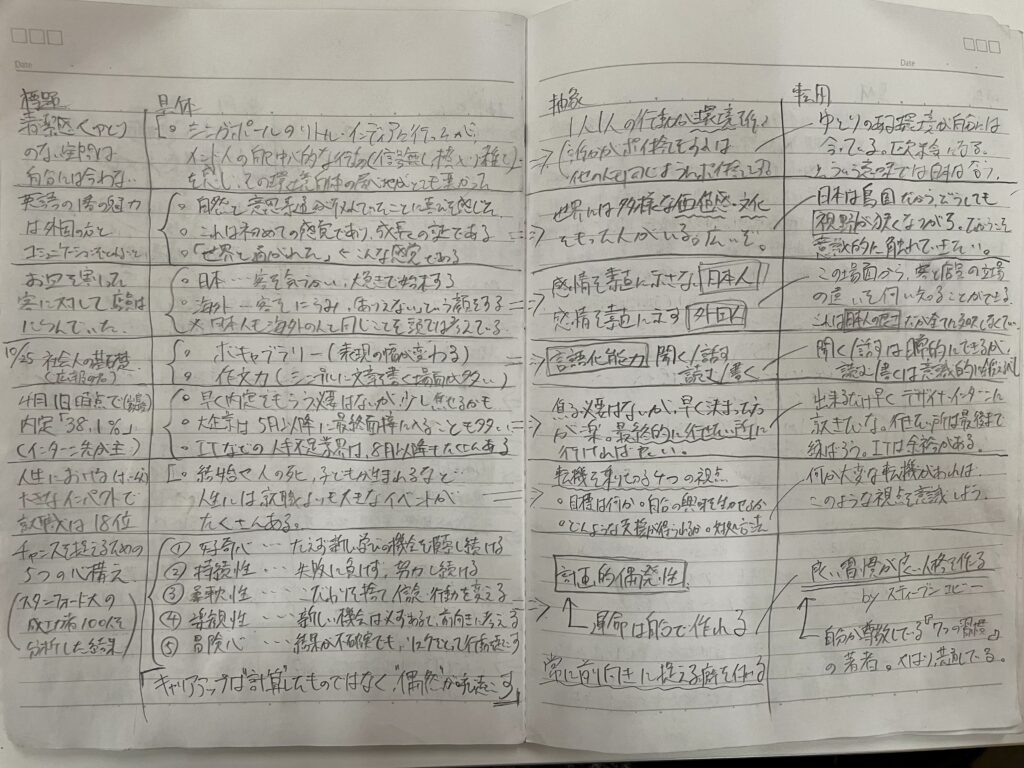 Date
標題
具体
青楽区(ゆとり)
のない空間は
自分には合わない
○ シンガポールのリトル・インディアに行ったが、
インド人の自己中心的な行動(信号無し、
その環境自体の居心地がとても悪かった
英語の1番の魅力
は外国の方と
コミュニケーションをとれること
○ 自然と意思疎通が取れていたことに喜びを感じた
○ これは初めての感覚であり、成長の証である
○ 「世界と画がれた」こんな感覚である
お皿を割った
客に対して店員は
にらんでいた。
○ 日本…客を気づかい、大急ぎで始末する
○ 海外…客をにらみ、ありえないという顔をする
※日本人も海外の人と同じことを頭では考えている
10/25 社会人の基礎
○ ボキャブラリー(表現の幅が変わる)
○ 作文力(シンプルに文章を書く場面が多い)
4月1日時点で
内定「38.1%」
(インターン先が主)
○ 早く内定をもらう必要はないが、少し焦せるかも
○ 大企業は5月以降に最終面接に入ることも多い
○ ITなどの人手不足業界は、8月以降もたくさんある
人生における
大きなインパクトで
就職は18位
○ 結婚や人の死、子どもが生まれるなど…
人生には就職よりも大きなイベントが
たくさんある。
チャンスを捉えるための
5つの心構え
(スタンフォード大の
成功者100人を
分析した結果)
① 好奇心…たえず新しい学びの機会を模索し続ける
② 持続性…失敗に負けず、努力し続ける
③ 柔軟性…こだわりを捨て、信念、行動を変える
④ 楽観性…新しい機会は必ず来る、前向きに考える
⑤ 冒険心…結果が不確実でも、リスクとって行動を起こす
キャリアアップは"計算"したものではなく、"偶然"が引き起こす
Date
抽象
転用
1人1人の行動が環境を作る
誰かがポイ捨てをすれば
他の人も同じようにポイ捨てする
ゆとりのある環境が自分には
合っている。
そういう意味では日本は合う。
世界には多様な価値感・文化
をもった人がいる。広いぞ。
日本は島国だから、どうしても
視野が狭くなりがち。
意識的に触れていきたい。
感情を素直に示さない 日本人
感情を素直に示す 外国人
この場面から、客と店員の立場
の違いを伺い知ることができる。
言語化能力 聞く/話す
読む/書く
聞く/話すは日常的にできるが、
読む/書くは意識的に
焦る必要はないが、早く決まった方
が楽。最終的に行きたい所に
行ければよい。
出来るだけ早くデザイナーインターンに
行きたいな。行きたい所は最後まで
粘ろう。ITは余裕がある。
転機を乗りこえる4つの視点
○目標は何か○自分の興味を生かせるか
○どんな支援が得られるか○対処方法
何か大変な転機があれば
このような視点を意識しよう。
計画的偶発性
運命は自分で作れる
常に前向きに捉える癖を付ける
良い習慣が良い人格を作る
by スティーブン・コビー
自分が尊敬している『7つの習慣』
の著者。やはり共通している。